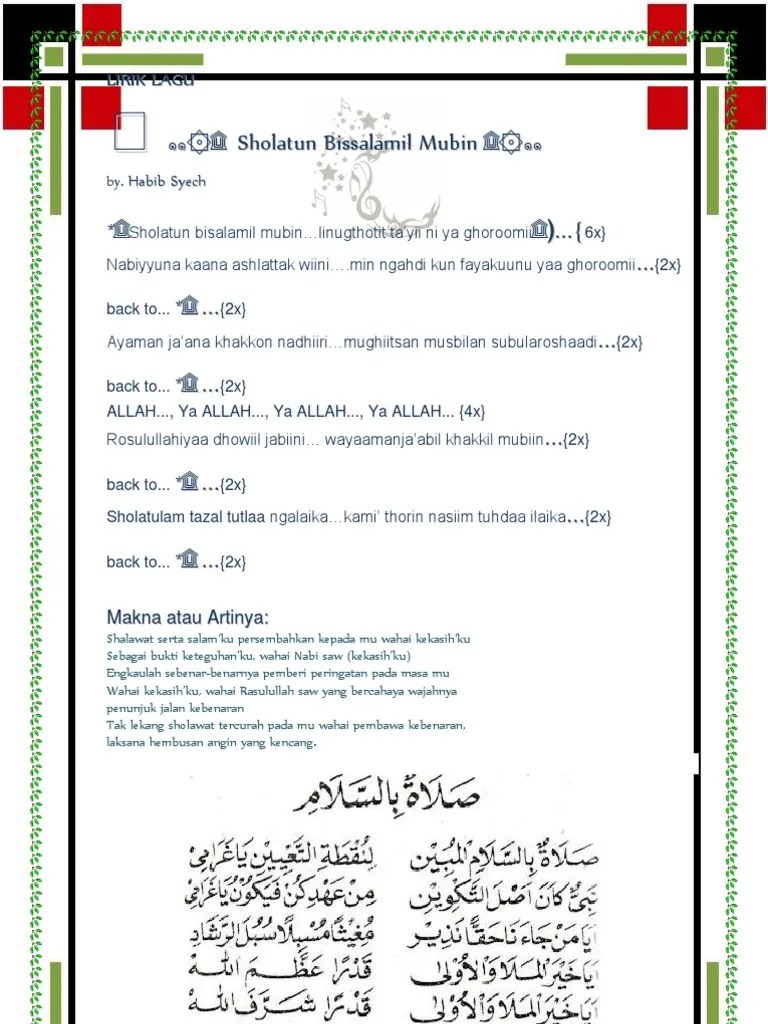 LIRIK LAGU
Sholatun Bissalamil Mubin
by. Habib Syech
*۩Sholatun bisalamil mubin…linugthotit ta'yii ni ya ghoroomii۩)…{ 6x}
Nabiyyuna kaana ashlattak wiini….min ngahdi kun fayakuunu yaa ghoroomii…{2x}
back to... *۩ …{2x}
Ayaman ja'ana khakkon nadhiiri…mughiitsan musbilan subularoshaadi…{2x}
back to... *۩ …{2x}
ALLAH..., Ya ALLAH..., Ya ALLAH..., Ya ALLAH... {4x}
Rosulullahiyaa dhowiil jabiini… wayaamanja'abil khakkil mubiin…{2x}
back to... *۩ …{2x}
Sholatulam tazal tutlaa ngalaika…kami' thorin nasiim tuhdaa ilaika…{2x}
back to... *۩ …{2x}
Makna atau Artinya:
Shalawat serta salam'ku persembahkan kepada mu wahai kekasih'ku
Sebagai bukti keteguhan'ku, wahai Nabi saw (kekasih'ku)
Engkaulah sebenar-benarnya pemberi peringatan pada masa mu
Wahai kekasih'ku, wahai Rasulullah saw yang bercahaya wajahnya
penunjuk jalan kebenaran
Tak lekang sholawat tercurah pada mu wahai pembawa kebenaran,
laksana hembusan angin yang kencang.
صَلَاةٌ بِالسَّلَامِ
صَلَاةٌ بِالسَّلَامِ الْمُبِيْنِ لِنُقْطَةِ التَّعْيِيْنِ يَاغَرَامِيْ
نَبِيٌّ كَانَ اَصْلَ التَّكْوِيْنِ مِنْ عَهْدِ كُنْ فَيَكُوْنُ يَاغَرَامِيْ
اَيَا مَنْ جَاءَنَا حَقًّا نَذِيْر مُغِيْثًا مُسْبِلًا سُبُلَ الرَّشَادِ
اَيَاخَيْرَ الْمَلَا وَالْاُوْلَى قَدْرًا عَظَّمَ اللهُ
اَيَاخَيْرَ الْمَلَا وَالْاُوْلَى قَدْرًا شَرَّفَ اللهُ